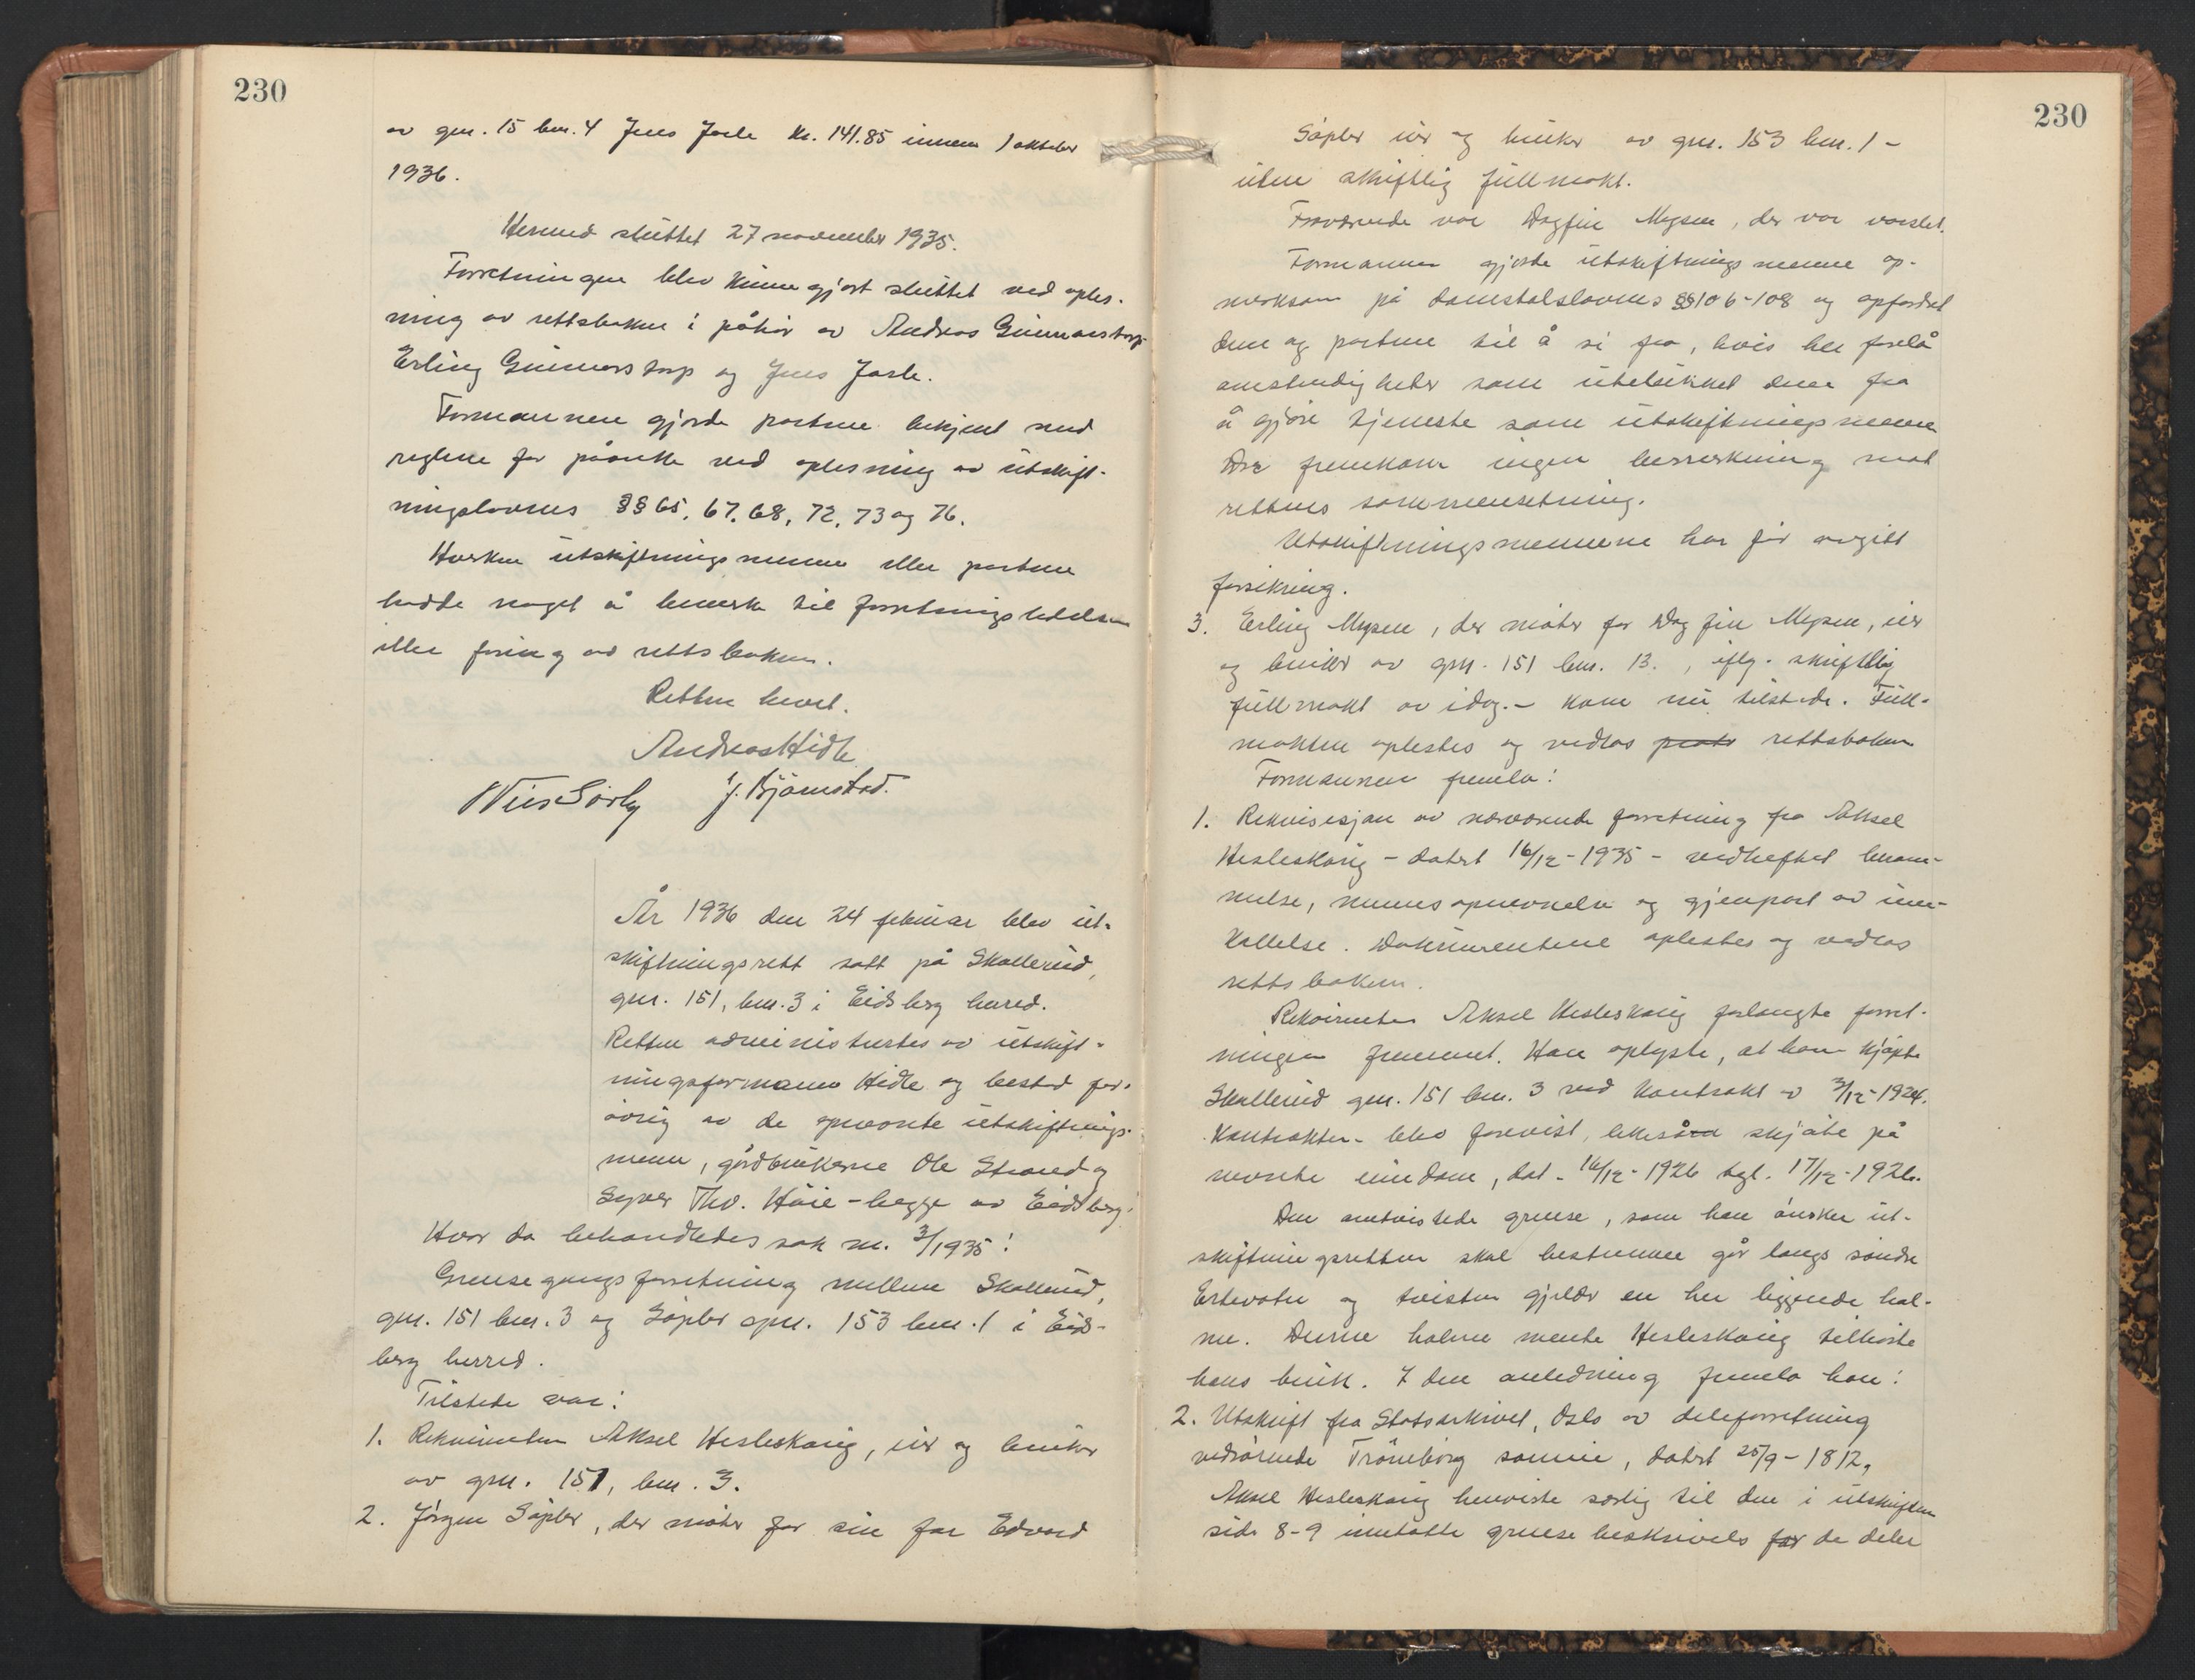 230
av gnr. 15 bnr. 4 Jens Jarle kr. 141.85 innen 1 oktober
1936.
Hermed sluttet 27 november 1935.
Forretningen blev kunngjort sluttet ved oples-
ning av rettsboken i påhör av Andreas Gunnarstorp
Erling Gunnarstorp og Jens Jarle.
Formannen gjorde partene bekjent med
reglene for påanke ved oplesning av utskift-
ningslovens §§ 65, 67, 68, 72, 73 og 76.
Hverken utskiftningsmennene eller partene
hadde noget å bemerke til forretningsledelsen
eller föring av rettsboken.
Retten hevet.
Andreas Hidle
Nils Sörby J. Björnstad.
År 1936 den 24 februar blev ut-
skiftningsrett satt på Skallerud,
gnr. 151, bnr. 3 i Eidsberg herred.
Retten administrertes av utskift-
ningsformann Hidle og bestod for-
övrig av de opnevnte utskiftnings-
menn, gårdbrukerne Ole Strand og
Syver Thv. Höie - begge av Eidsberg.
Hvor da behandledes sak nr. 3/1935:
Grensegangsforretning mellem Skallerud,
gnr. 151 bnr. 3 og Söpler gnr. 153 bnr. 1 i Eids-
berg herred.
Tilstede var:
1. Rekvirenten Aksel Hesleskaug, eier og bruker
av gnr. 151, bnr. 3.
2. Jörgen Söpler, der möter for sin far Edvard
230
Söpler eier og bruker av gnr. 153 bnr. 1 -
uten skriftlig fullmakt.
Fraværende var Dagfin Mysen, der var varslet.
Formannen gjorde utskiftningsmennene op-
merksom på domstolslovens §§ 106-108 og opfordret
dem og partene til å si fra, hvis der forelå
omstendigheter som utelukket dem fra
å gjöre tjeneste som utskiftningsmenn
Der fremkom ingen bemerkning mot
rettens sammensetning.
Utskiftningsmennene har för avgitt
forsikring.
3. Erling Mysen, der möter for Dagfin Mysen, eier
og bruker av gnr. 151 bnr. 13., iflg. skriftlig
fullmakt av idag. - kom nu tilstede. Full-
makten oplestes og vedlas rettsboken
Formannen fremla:
1. Rekvisisjon av nærværende forretning fra Aksel
Hesleskaug - datert 16/12-1935 - vedheftet beram-
melse, mennsopnevnelse og gjenpart av inn-
kallelse. Dokumentene oplestes og vedlas
rettsboken.
Rekvirenten Aksel Hesleskaug forlangte forret-
ningen fremmet. Han oplyste, at han kjöpte
Skallerud gnr. 151 bnr. 3 ved kontrakt av 3/12-1924.
Kontrakten blev forevist, likeså skjöte på
nevnte eiendom, dat. 16/12-1926 tgl. 17/12-1926.
Den omtvistede grense, som han önsker ut-
skiftningsretten skal bestemme går langs söndre
Ertevatn og tvisten gjelder en her liggende hol-
me. Denne holme mente Hesleskaug tilhörte
hans bruk. I den anledning fremla han:
2. Utskrift fra Statsarkivet, Oslo av deleforretning
vedrörende Tröneborg sameie, datert 25/9-1812,
Aksel Hesleskaug henviste særlig til den i utskriften
side 8-9 inntatte grensebeskrivelse for de deler